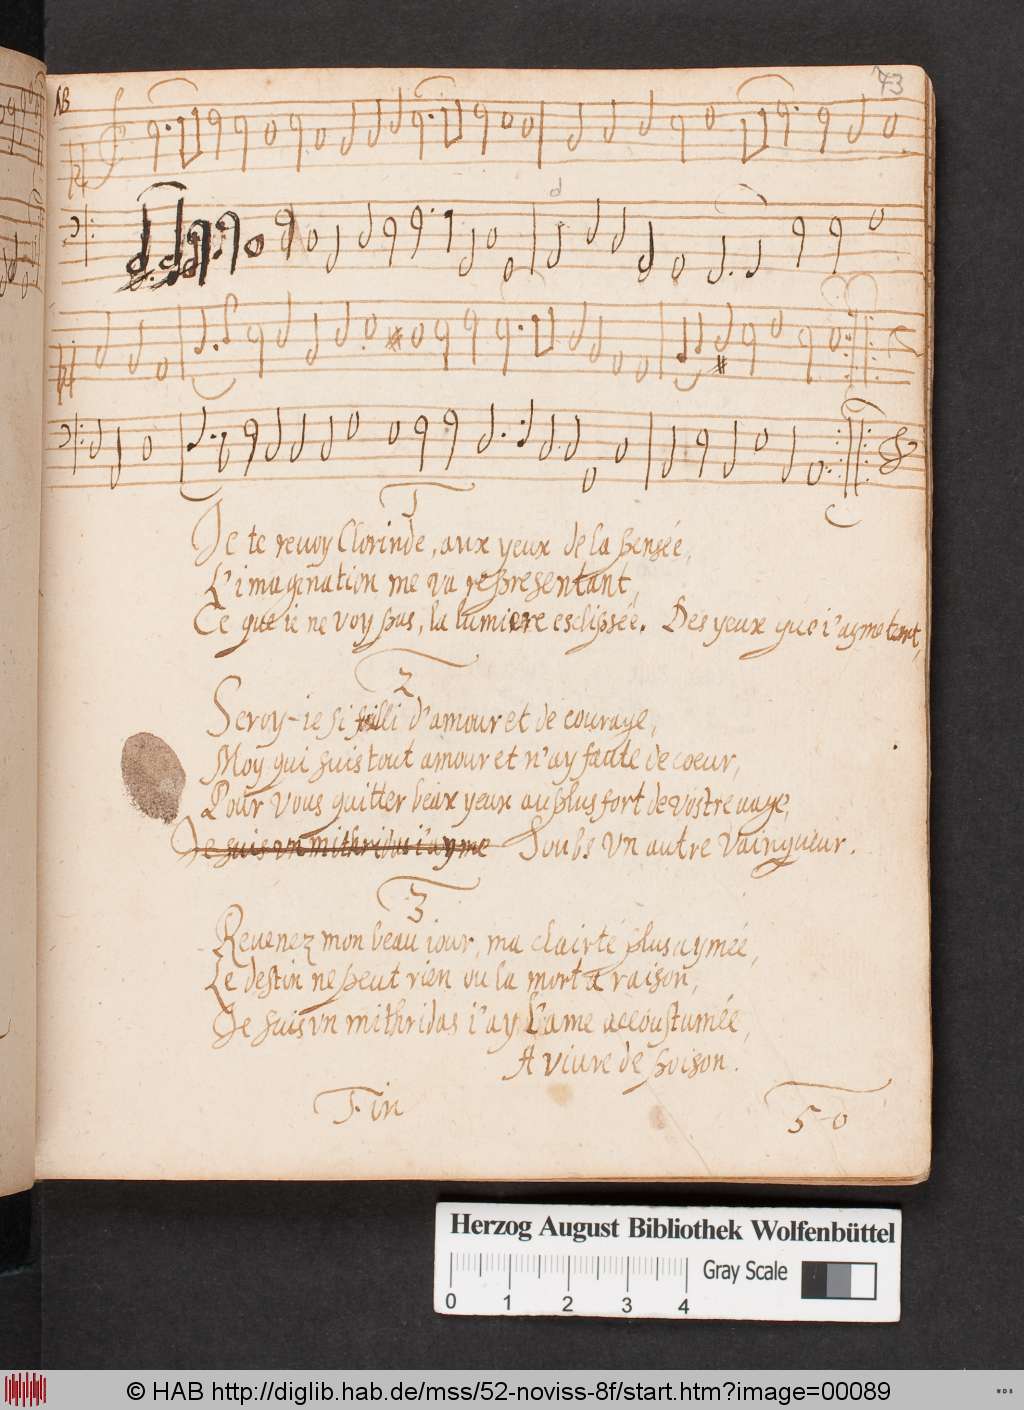 NB
73
d
1
Je te reuoy Clorinde, aux yeux de la pensée,
L'imagination me va representant,
Ce que ie ne voy pas, la lumiere esclipsée. Des yeux que i'ayme tant,
2
Seroy-ie si failli d'amour et de courage,
Moy qui suis tout amour et n'ay faute de coeur,
Pour vous quitter beax yeux au plus fort de vostre aage,
Je suis vn mithridas i'ayme Soubs vn autre vainqueur.
3
Reuenez mon beau iour, ma clairté plus aymée,
Le destin ne peut rien ou la mort a raison,
Je suis vn mithridas i'ay l'ame accoustumée,
A viure de poison.
Fin
50
Herzog August Bibliothek Wolfenbüttel
0 1 2 3 4
Gray Scale
© HAB http://diglib.hab.de/mss/52-noviss-8f/start.htm?image=00089